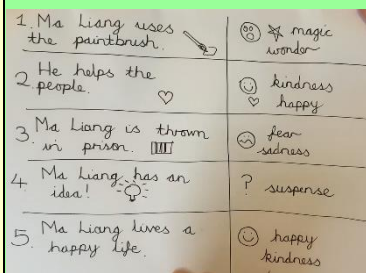 1. Ma Liang uses
the paintbrush.
magic
wonder
2. He helps the
people.
kindness
happy
3. Ma Liang is thrown
in prison.
fear
sadness
4. Ma Liang has an
idea!
? suspense
5. Ma Liang lives a
happy life.
happy
kindness